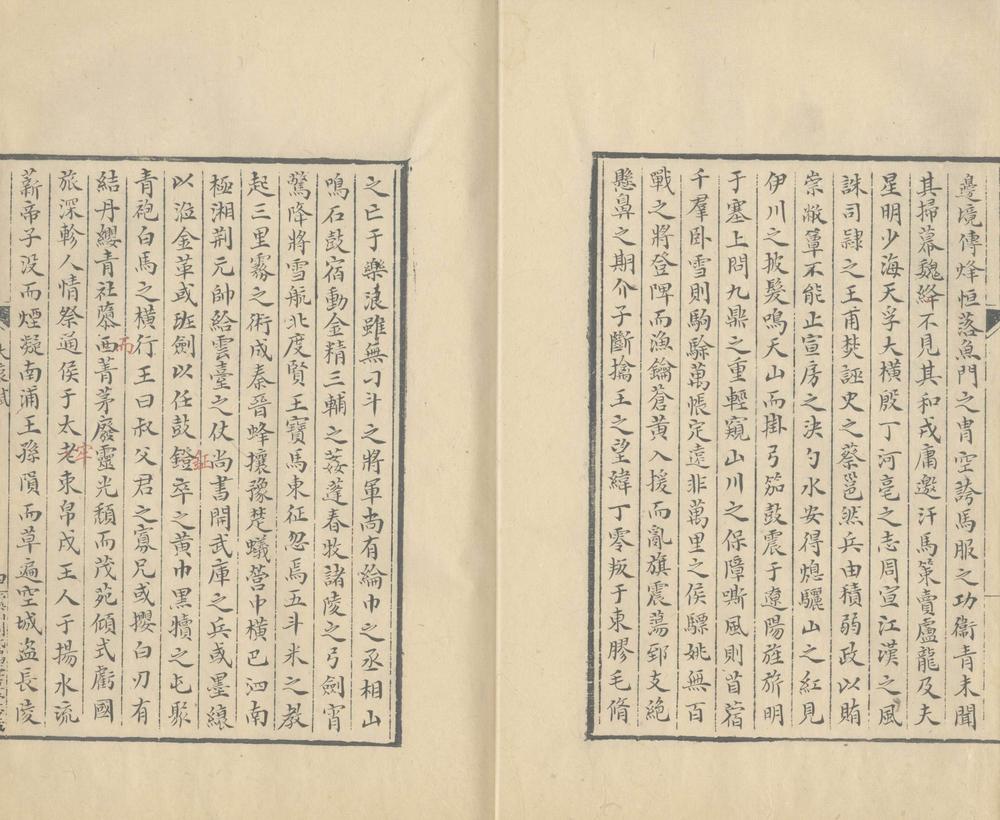 邊境傳烽恒落魚門之胄空誇馬服之功衞青未聞
其掃幕魏絳不見其和戎庸邀汗馬策賣盧龍及夫
星明少海天孚大橫殷丁河亳之志周宣江漢之風
誅司隷之王甫焚誣史之蔡邕然兵由積弱政以賄
崇敝簟不能止宣房之決勺水安得熄驪山之紅見
伊川之披髮鳴天山而掛弓笳鼓震于遼陽旌旂明
于塞上問九鼎之重輕窺山川之保障嘶風則苜蓿
千羣卧雪則駒駼萬帳定遠非萬里之侯驃姚無百
戰之將登陴而漁鑰蒼黃入援而亂旗震蕩郅支絕
懸鼻之期介子斷擒王之望緯丁零叛于東膠毛脩
之亡于樂浪雖無刁斗之將軍尚有綸巾之丞相山
鳴石鼓宿動金精三輔之菱蓬春牧諸陵之弓劍宵
驚降將雪航北度賢王寶馬東征忽焉五斗米之教
起三里霧之術成秦晉蜂攘豫楚蟻營巾橫巴泗南
極湘荆元帥給雲臺之仗尚書開武庫之兵或墨縗
以涖金革或班劍以任鼓鐙卒之黃巾黑犢之屯聚
鉦
青袍白馬之橫行王曰叔父君之寡兄或攖白刃有
結丹纓青社隳西菁茅廢靈光頹而茂苑傾式虧國
而
旅深軫人情祭通侯于太老束帛戍王人于揚水流
牢
薪帝子没而煙凝南浦王孫隕而草遍空城盜長陵
大哀賦